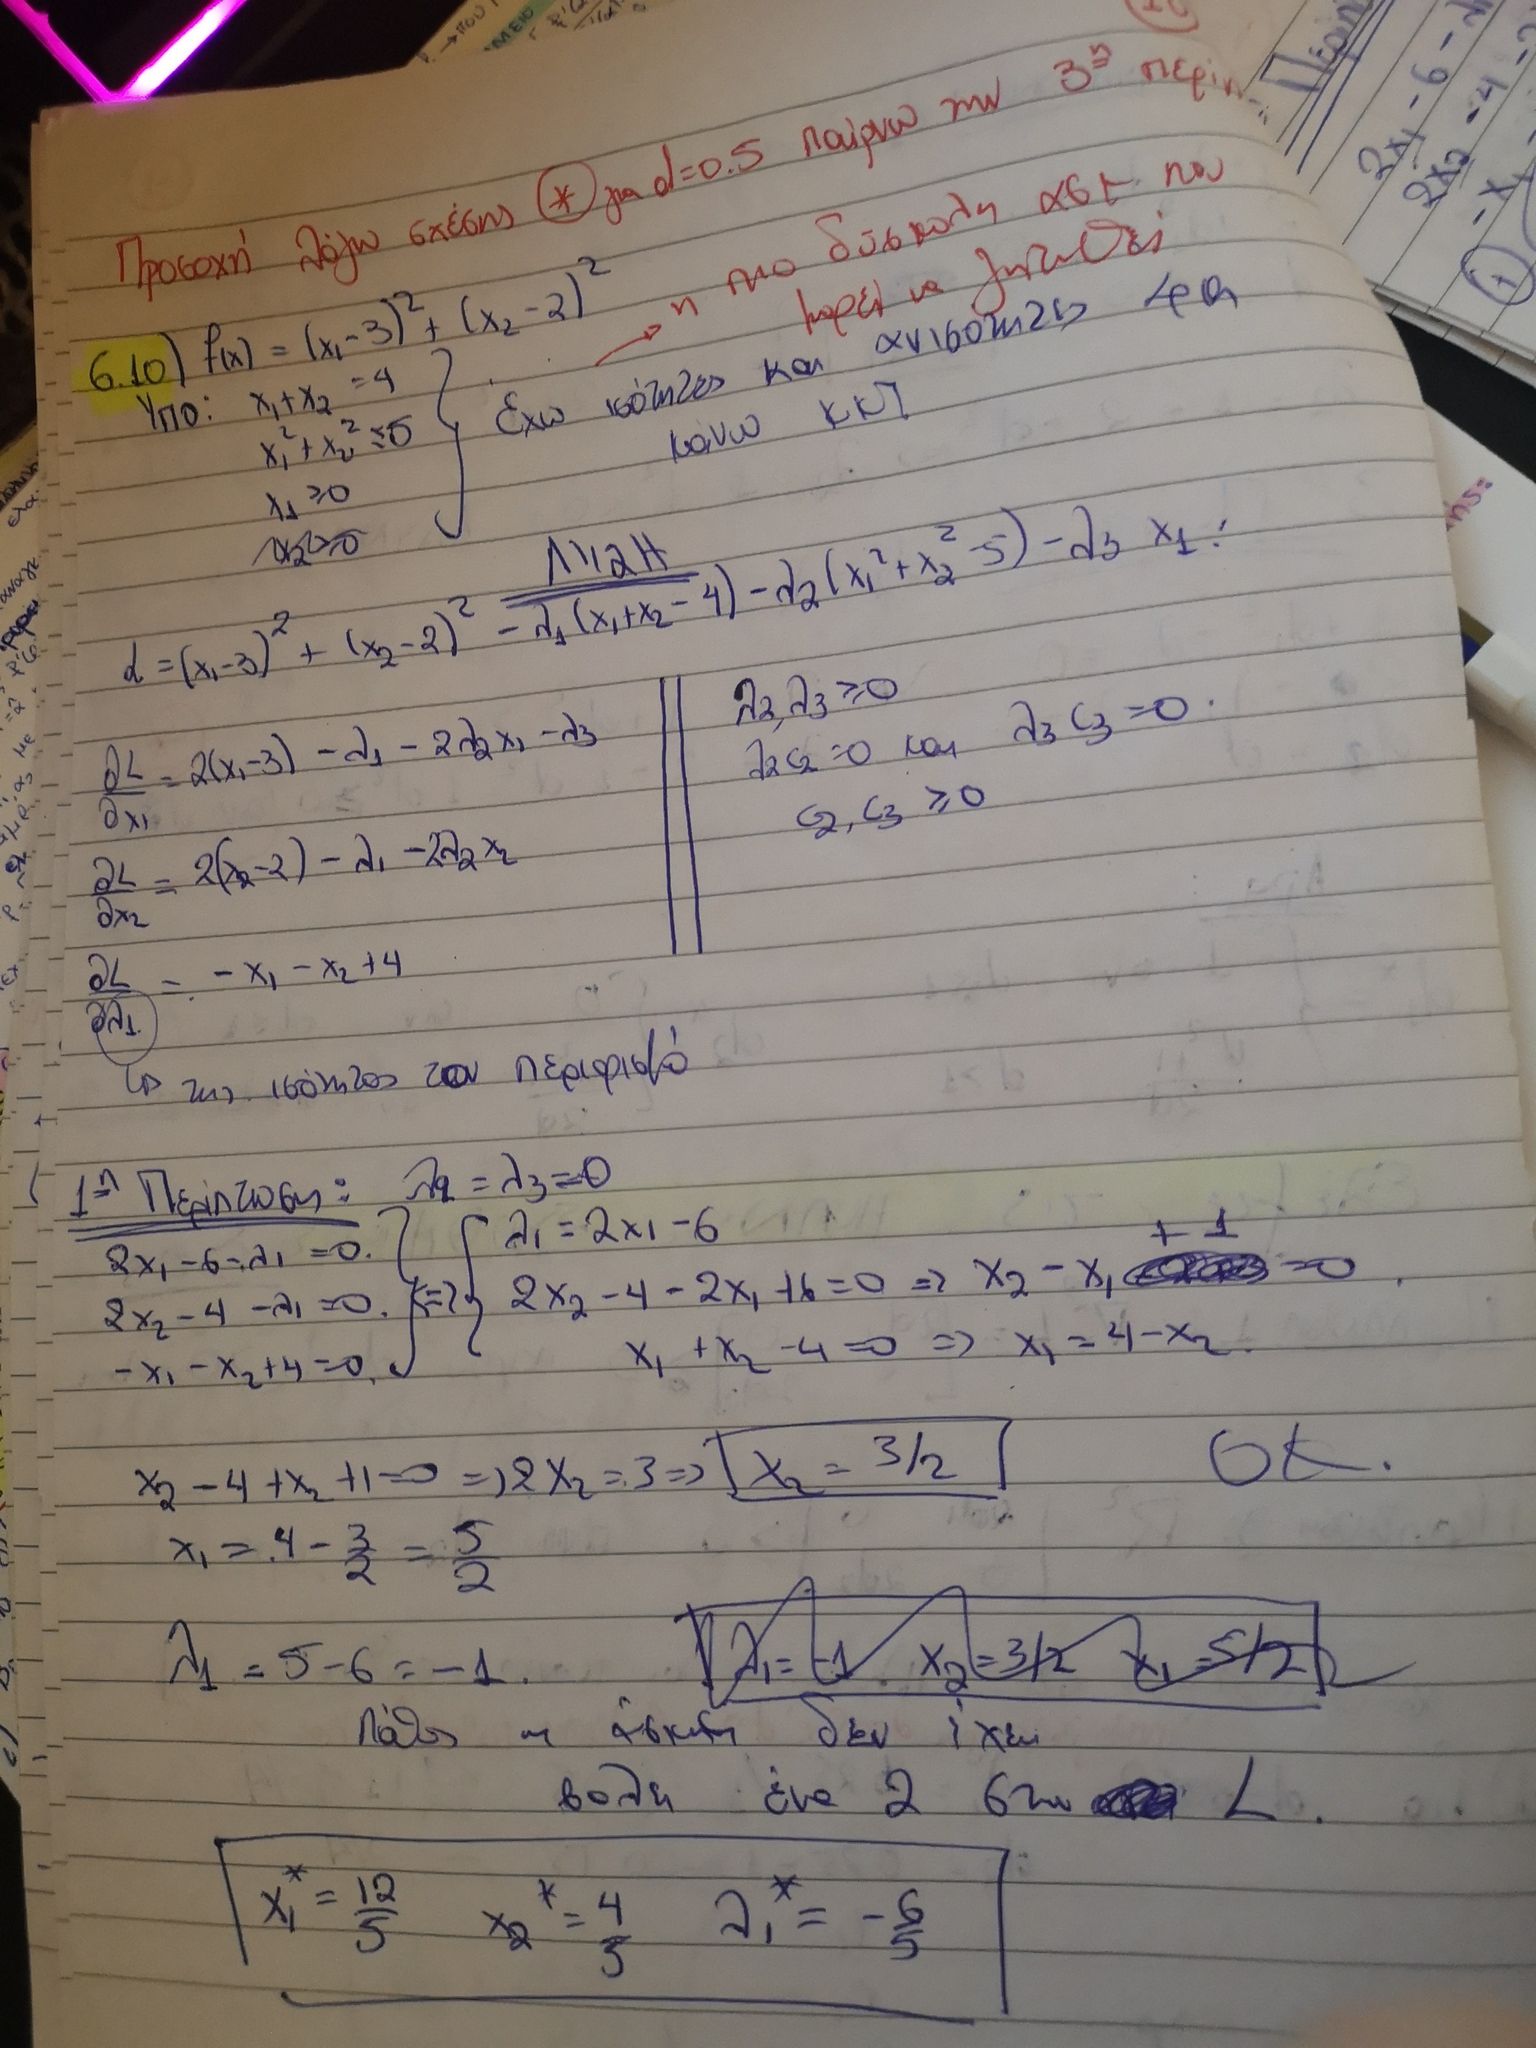 Προσοχή λόγω σχέσης (*) για d=0.5 παίρνω την 3η
6.10) f(x) = (x₁-3)² + (x₂-2)²
→ η πιο δύσκολη ασκ που
μπορεί να ζητηθεί
Υπο: x₁+x₂ =4
x₁²+x₂² ≤5
x₁ ≥0
x₂≥0
Έχω ισότητες και ανισότητες άρα
κάνω ΚΚΤ
ΛΥΣΗ
L = (x₁-3)² + (x₂-2)² - λ₁(x₁+x₂-4) - λ₂(x₁²+x₂²-5) - λ₃ x₁
∂L/∂x₁ = 2(x₁-3) - λ₁ - 2λ₂x₁ - λ₃
λ₂,λ₃ ≥0
λ₂c₂=0 και λ₃c₃=0.
c₂,c₃ ≥0
∂L/∂x₂ = 2(x₂-2) - λ₁ - 2λ₂x₂
∂L/∂λ₁ = -x₁ - x₂ +4
↳ της ισότητας τον περιορισμό
1η Περίπτωση: λ₂ = λ₃ =0
2x₁-6-λ₁ =0.
2x₂-4 -λ₁=0.
-x₁-x₂+4=0.
<=>
λ₁ = 2x₁ -6
2x₂-4-2x₁+6=0 => x₂ - x₁ +1 =0.
x₁ +x₂ -4=0 => x₁ = 4-x₂.
x₂ -4 +x₂ +1=0 => 2x₂ =3 => x₂ = 3/2
OK.
x₁ = 4 - 3/2 = 5/2
λ₁ = 5-6 = -1.
λ₁=-1 x₂=3/2 x₁=5/2
Λάθος η άσκηση δεν έχει
βάλει ένα 2 στην L.
x₁* = 12/5 x₂* = 4/5 λ₁* = -6/5